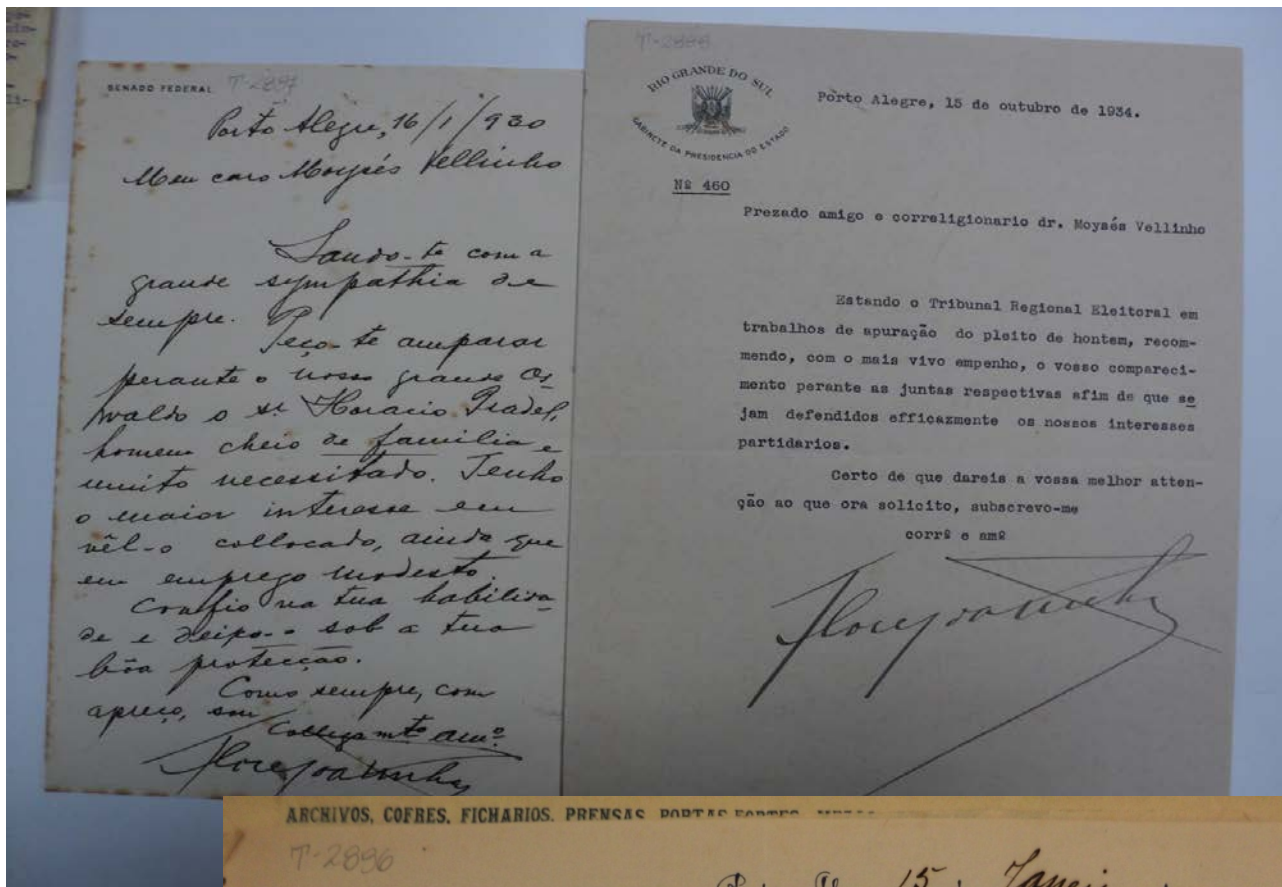 SENADO FEDERAL T-2897
Porto Alegre, 16/1/930
Meu caro Moysés Vellinho
Saudo-te com a
grande sympathia de
sempre.
Peço-te amparar
perante o nosso grande Os
waldo o sr Horacio Pradel,
homem cheio de familia e
muito necessitado. Tenho
o maior interesse em
vêl-o collocado, ainda que
em emprego modesto.
Confio na tua habilida-
de e deixo-o sob a tua
bôa protecção.
Como sempre, com
apreço, sou
Collega mto amº
T-2898
RIO GRANDE DO SUL
GABINETE DA PRESIDENCIA DO ESTADO
Porto Alegre, 15 de outubro de 1934.
Nº 460
Prezado amigo e correligionario dr. Moysés Vellinho
Estando o Tribunal Regional Eleitoral em
trabalhos de apuração do pleito de hontem, recom-
mendo, com o mais vivo empenho, o vosso compareci-
mento perante as juntas respectivas afim de que se
jam defendidos efficazmente os nossos interesses
partidarios.
Certo de que dareis a vossa melhor atten-
ção ao que ora solicito, subscrevo-me
corrº e amº
ARCHIVOS, COFRES, FICHARIOS, PRENSAS, PORTAS FORTES,
T-2896
15 Janei